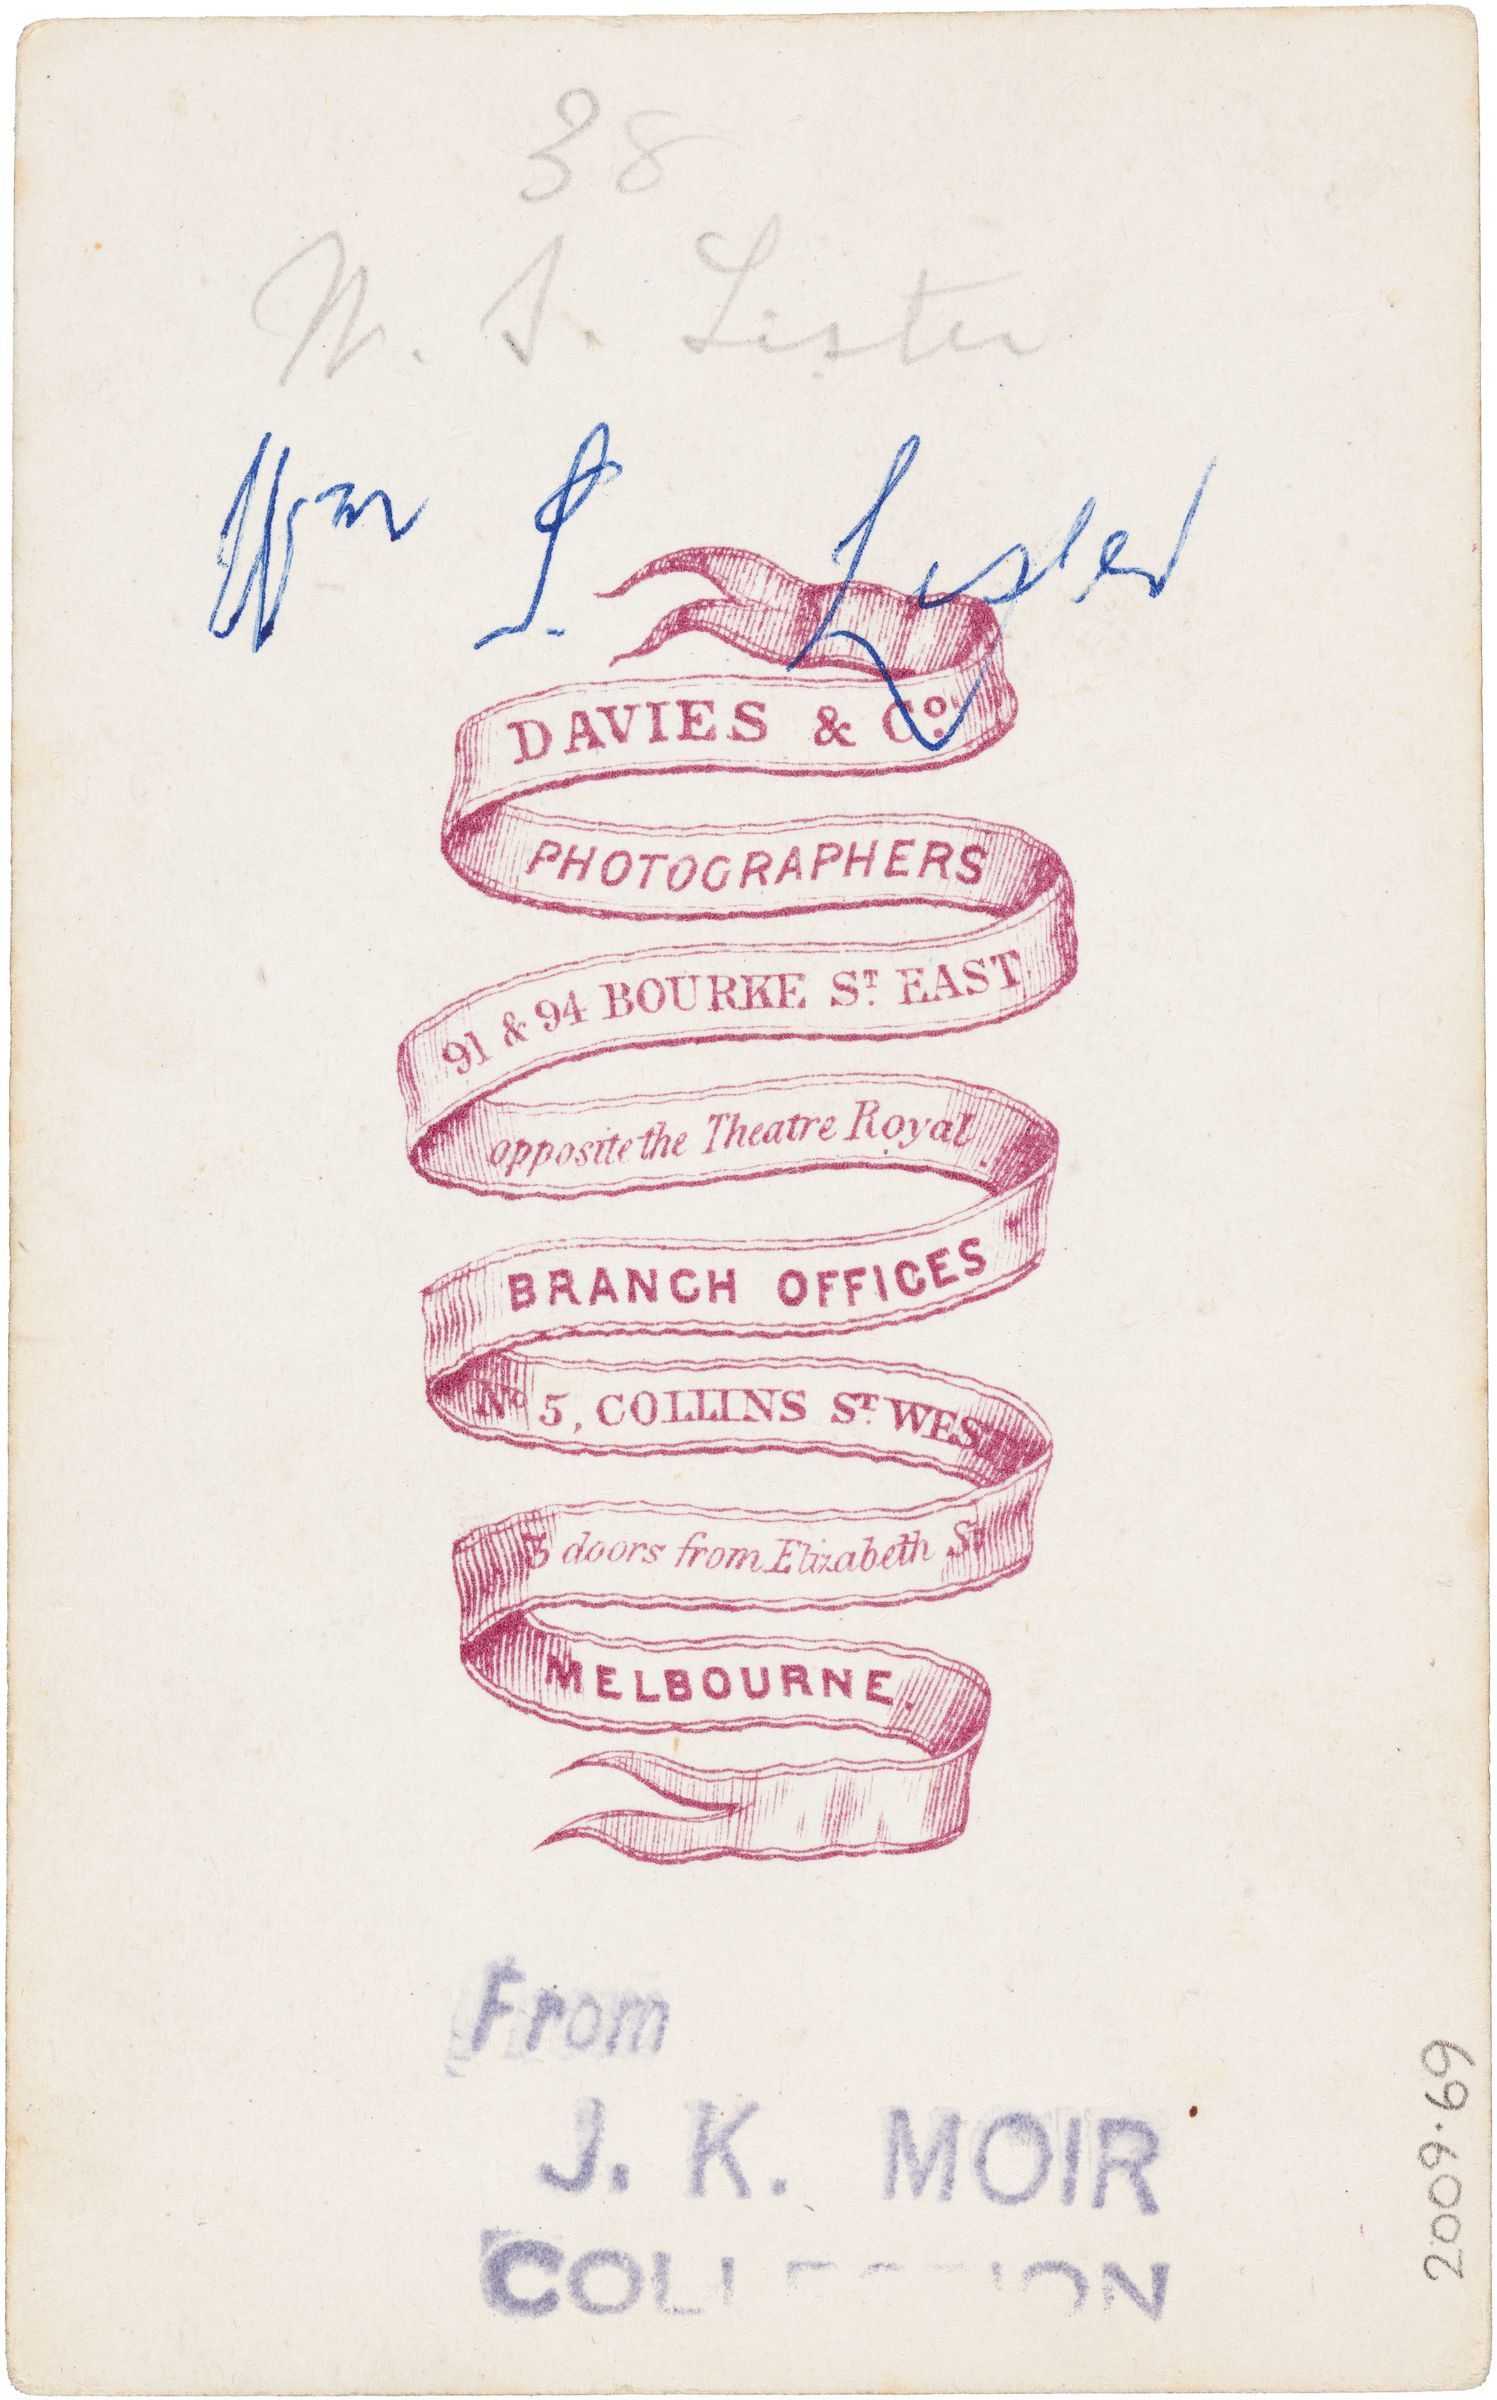 38
W. S. Lister
Wm S. Lyster
DAVIES & Co.
PHOTOGRAPHERS
91 & 94 BOURKE ST. EAST
opposite the Theatre Royal.
BRANCH OFFICES
No 5, COLLINS ST. WEST
3 doors from Elizabeth St
MELBOURNE.
From
J. K. MOIR
COLLECTION
2009.69